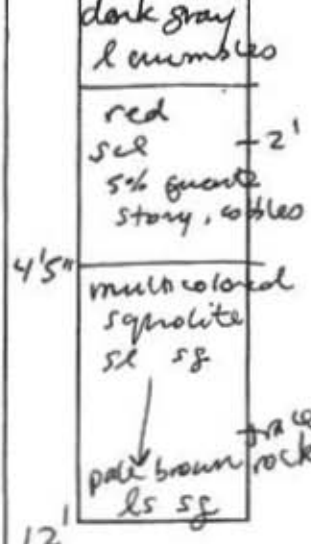 dark gray
l crumbles
red
scl
2'
5% quartz
stony, cobbles
4'5"
multicolored
saprolite
sl sg
pale brown rock
ls sg
12'